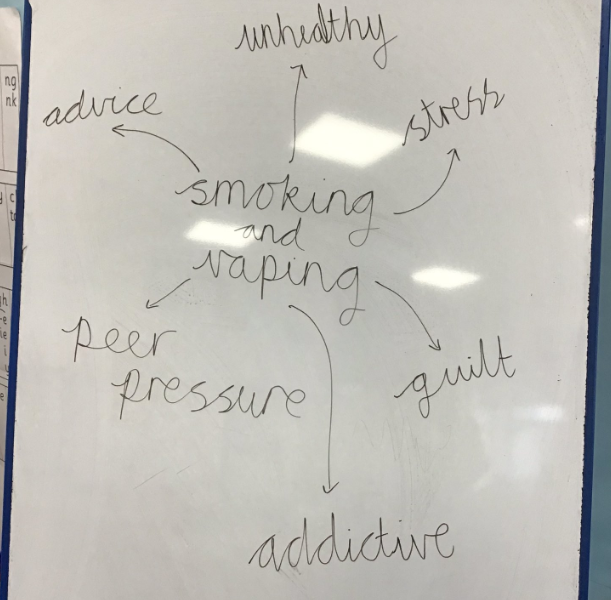 unhealthy
advice
stress
smoking
and
vaping
peer
pressure
guilt
addictive
ng
nk